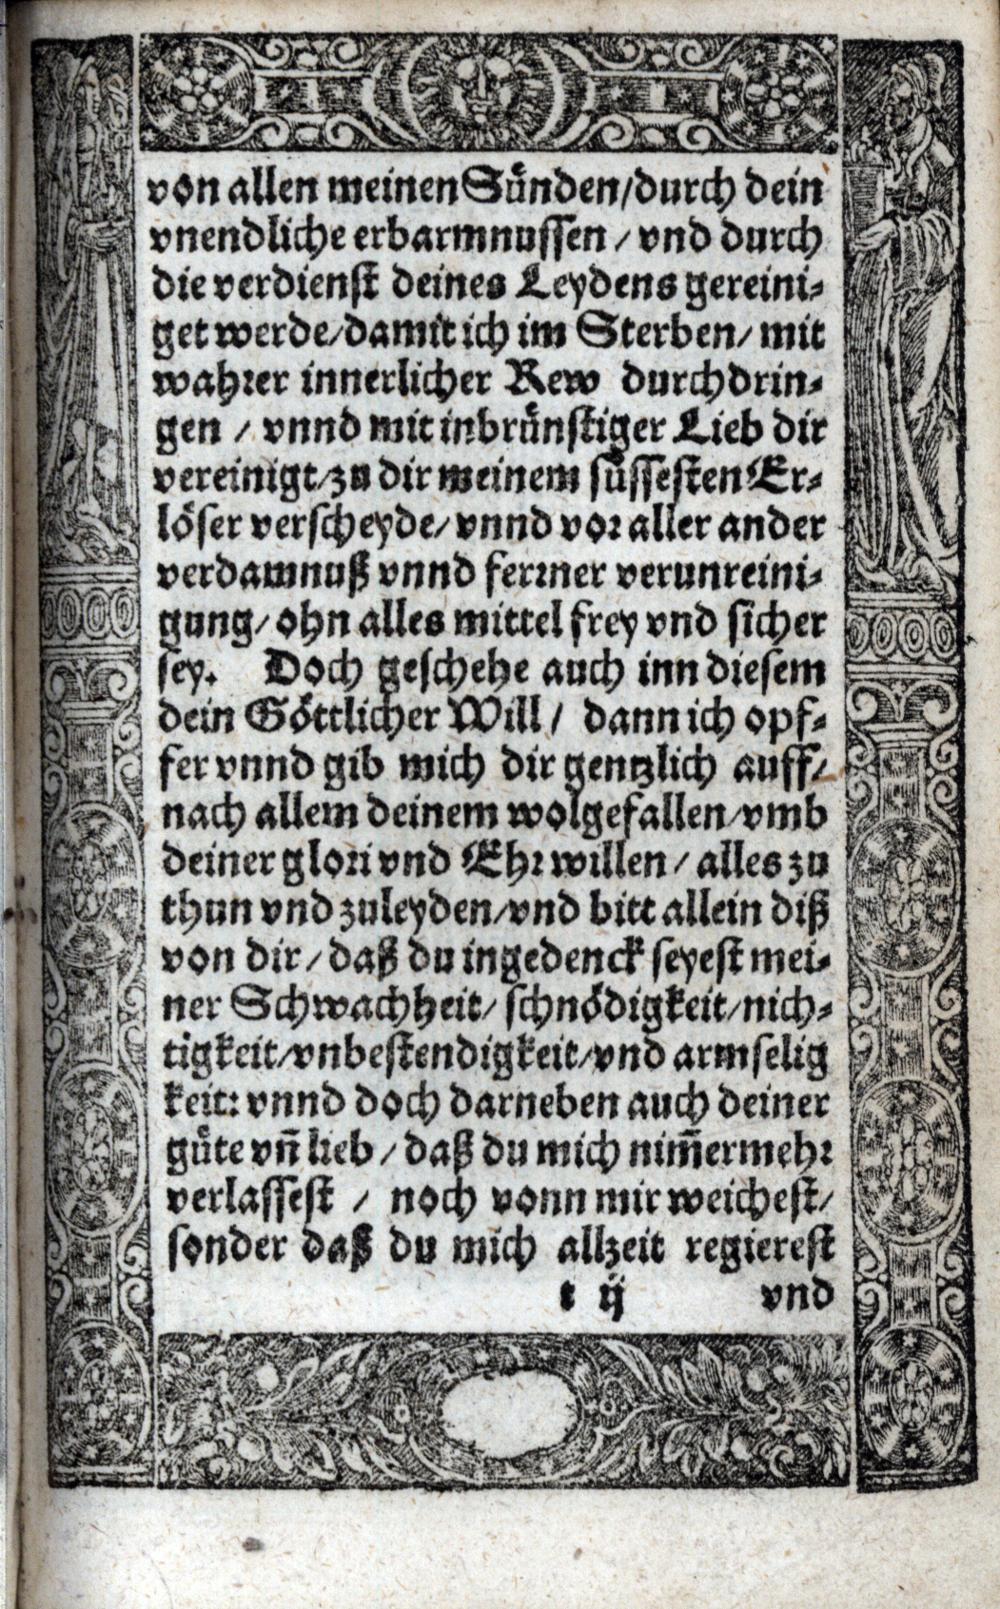 von allen meinen Sünden/durch dein
vnendliche erbarmnussen / vnd durch
die verdienst deines Leydens gereini-
get werde/damit ich im Sterben/ mit
wahrer innerlicher Rew durchdrin-
gen / vnnd mit inbrünstiger Lieb dir
vereinigt/zu dir meinem süssesten Er-
löser verscheyde/ vnnd vor aller ander
verdamnuß vnnd ferrner verunreini-
gung/ ohn alles mittel frey vnd sicher
sey. Doch geschehe auch inn diesem
dein Göttlicher Will / dann ich opf-
fer vnnd gib mich dir gentzlich auff/
nach allem deinem wolgefallen/vmb
deiner glori vnd Ehr willen / alles zu
thun vnd zuleyden/vnd bitt allein diß
von dir / daß du ingedenck seyest mei-
ner Schwachheit/ schnödigkeit/nich-
tigkeit/vnbestendigkeit/vnd armselig
keit: vnnd doch darneben auch deiner
güte vn̄ lieb / daß du mich nim̄ermehr
verlassest / noch vonn mir weichest/
sonder daß du mich allzeit regierest
t ij vnd